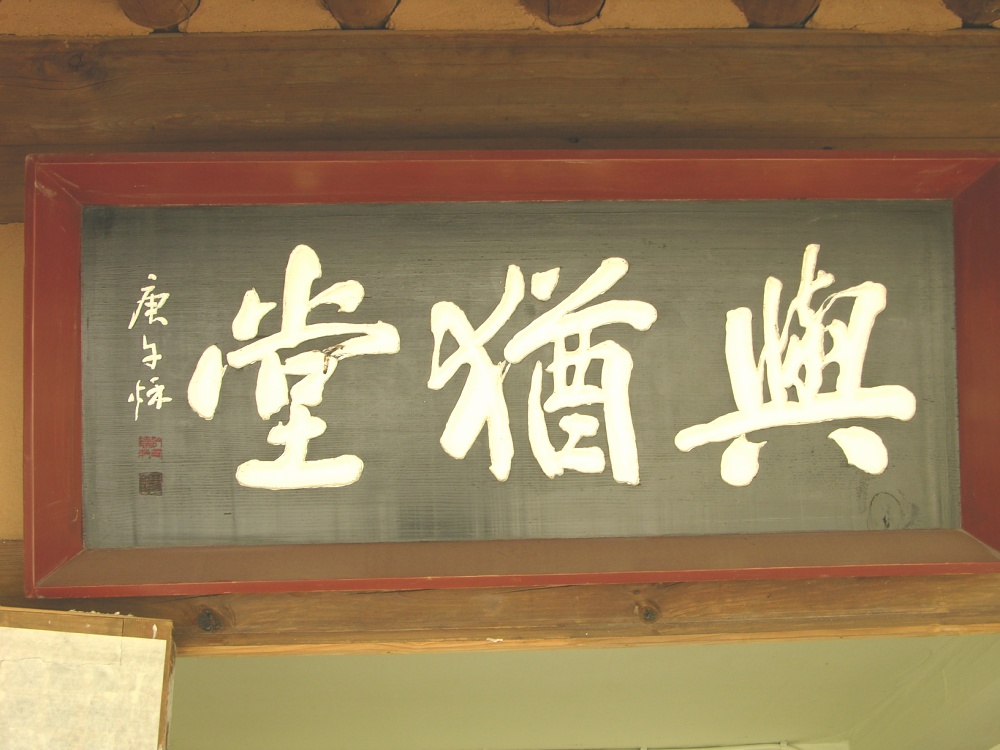 與猶堂
庚午秌